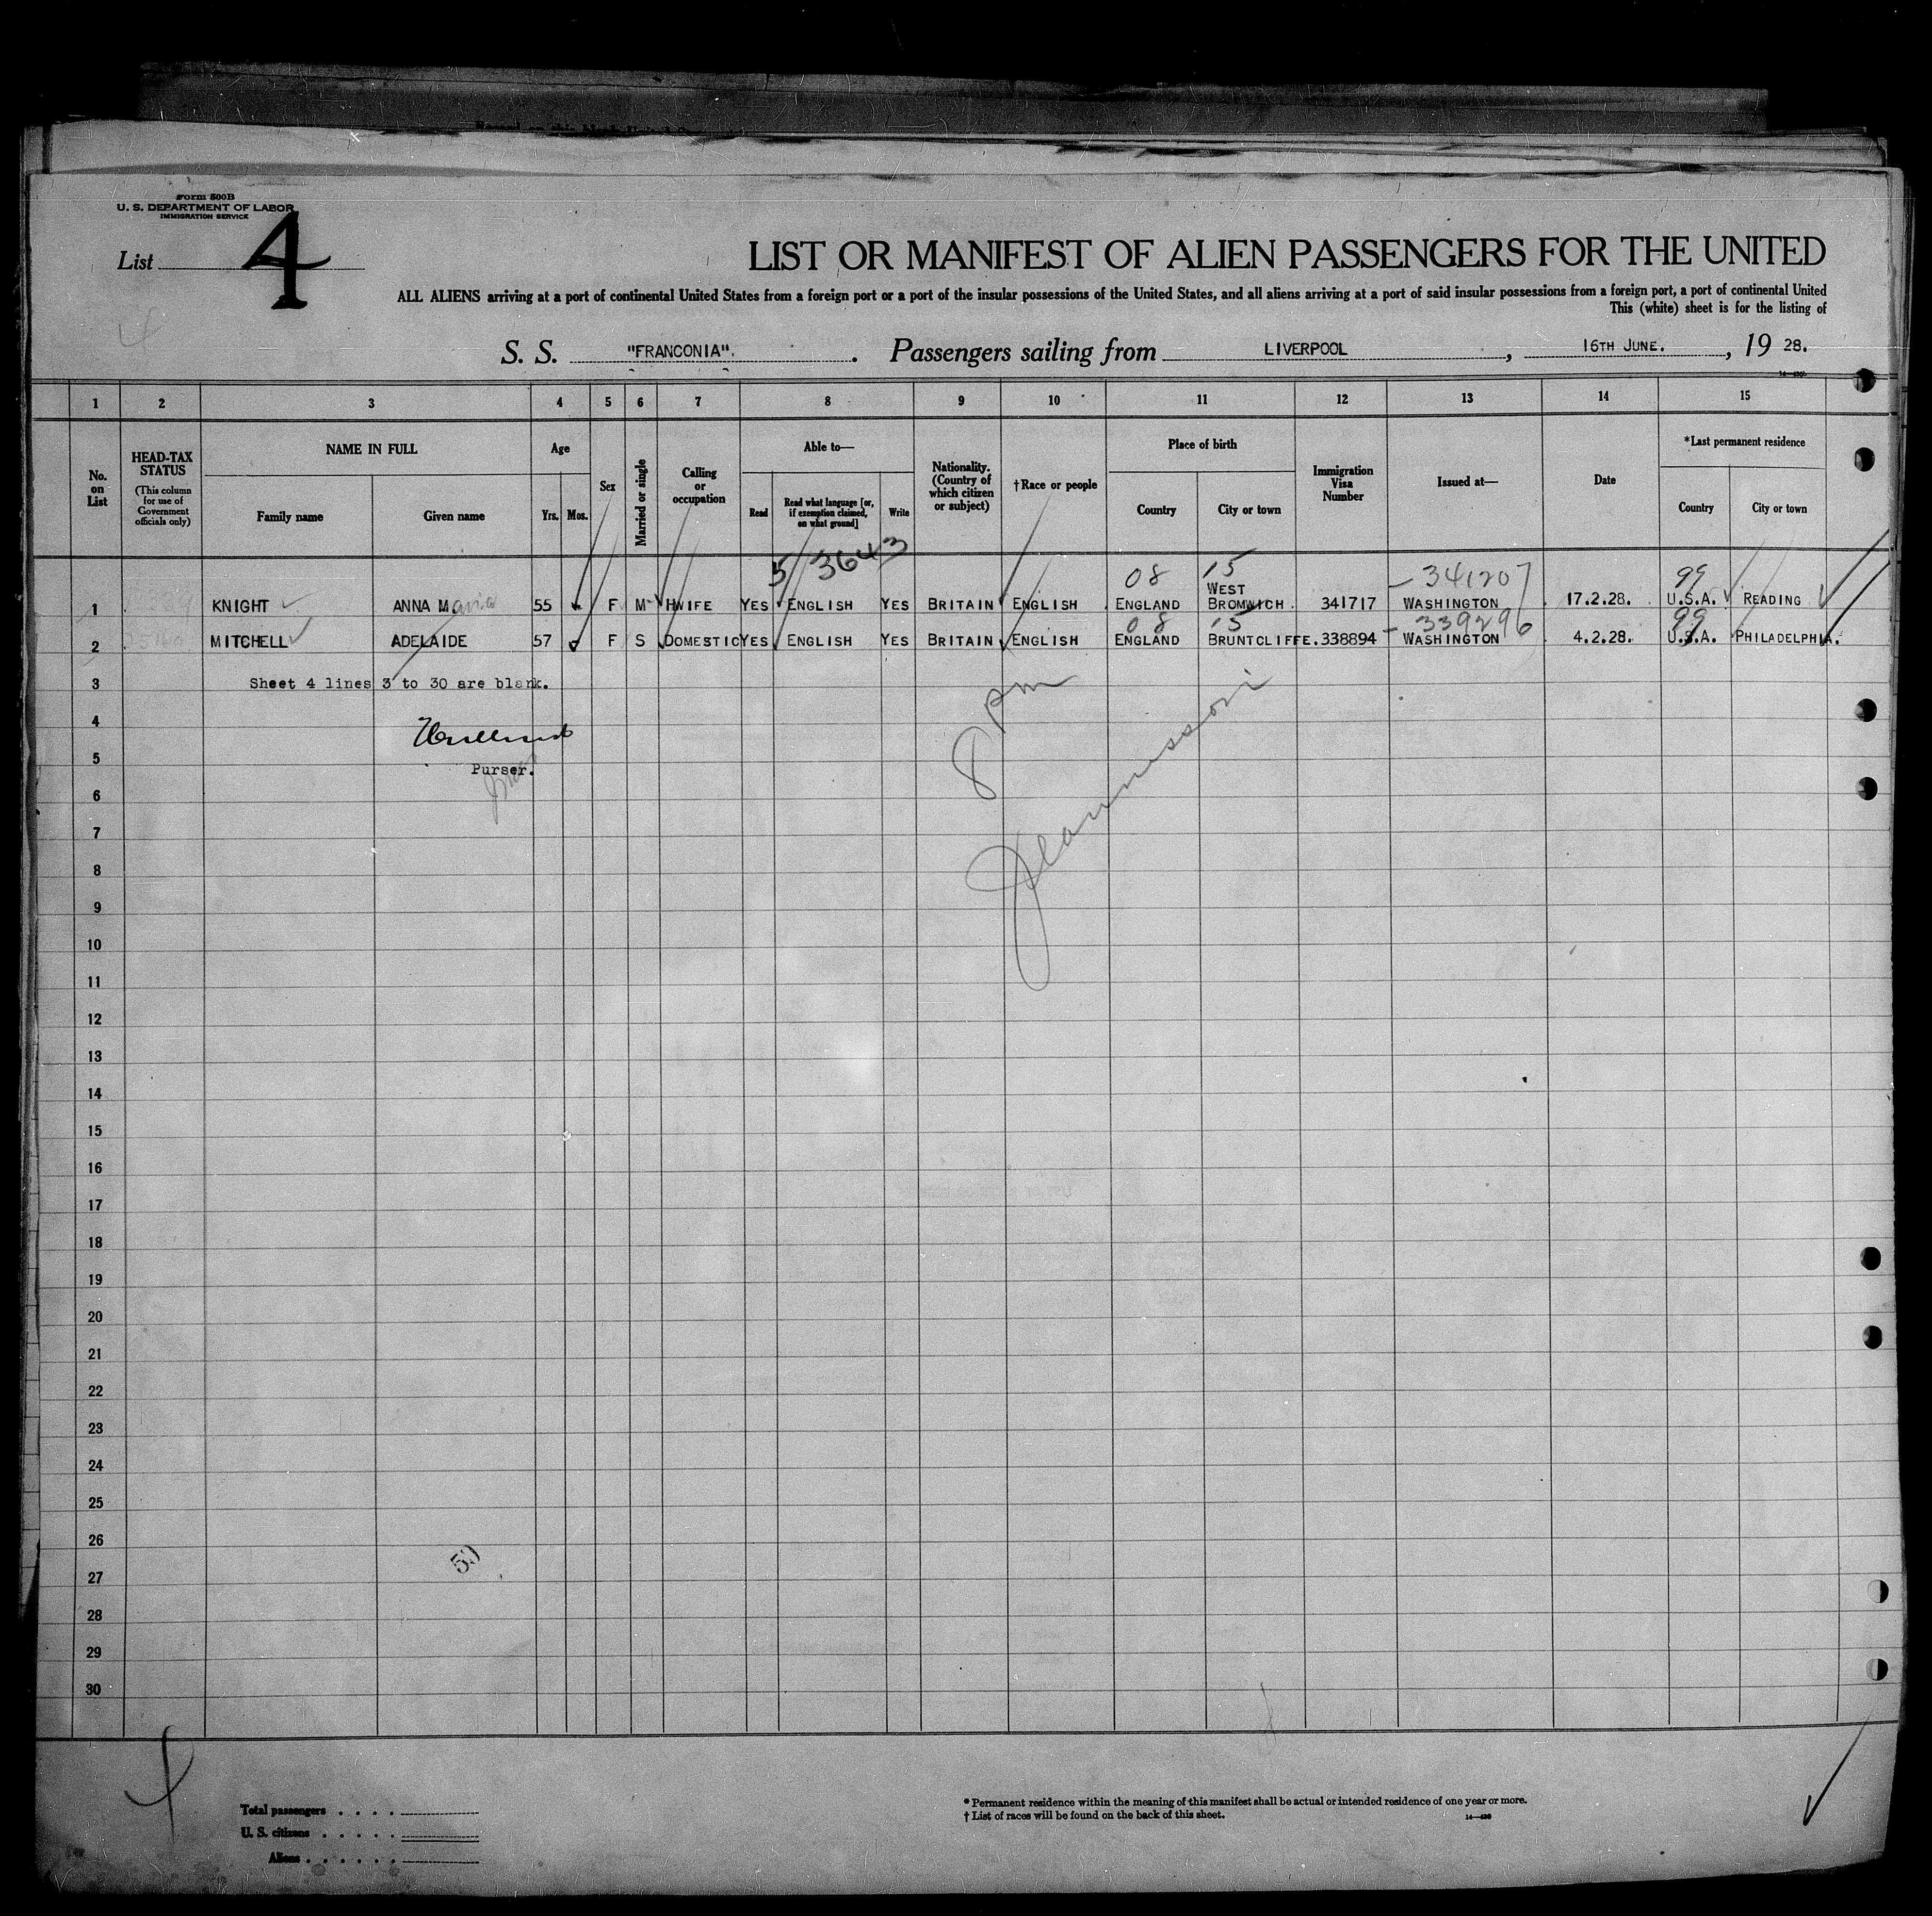 Form 500B
U. S. DEPARTMENT OF LABOR
IMMIGRATION SERVICE
List 4
LIST OR MANIFEST OF ALIEN PASSENGERS FOR THE UNITED
ALL ALIENS arriving at a port of continental United States from a foreign port or a port of the insular possessions of the United States, and all aliens arriving at a port of said insular possessions from a foreign port, a port of continental United
This (white) sheet is for the listing of
S. S. "FRANCONIA". Passengers sailing from LIVERPOOL, 16TH JUNE., 19 28.
1 2 3 4 5 6 7 8 9 10 11 12 13 14 15
No. on List
HEAD-TAX STATUS (This column for use of Government officials only)
NAME IN FULL
Family name Given name
Age
Yrs. Mos.
Sex
Married or single
Calling or occupation
Able to—
Read Read what language [or, if exemption claimed, on what ground] Write
Nationality. (Country of which citizen or subject)
† Race or people
Place of birth
Country City or town
Immigration Visa Number
Issued at—
Date
*Last permanent residence
Country City or town
5/3643
08 15 – 341207 99
1 KNIGHT ANNA Maria 55 F M HWIFE YES ENGLISH YES BRITAIN ENGLISH ENGLAND WEST BROMWICH. 341717 WASHINGTON 17.2.28. U.S.A. READING
08 15 – 339296 99
2 MITCHELL ADELAIDE 57 F S DOMESTIC YES ENGLISH YES BRITAIN ENGLISH ENGLAND BRUNTCLIFFE. 338894 WASHINGTON 4.2.28. U.S.A. PHILADELPHIA.
3 Sheet 4 lines 3 to 30 are blank.
4
5 Purser.
8 pm
6
7
8
9
10
11
12
13
14
15
16
17
18
19
20
21
22
23
24
25
26
59
27
28
29
30
Total passengers . . . .
U. S. citizens . . . . .
Aliens . . . . . .
* Permanent residence within the meaning of this manifest shall be actual or intended residence of one year or more.
† List of races will be found on the back of this sheet.